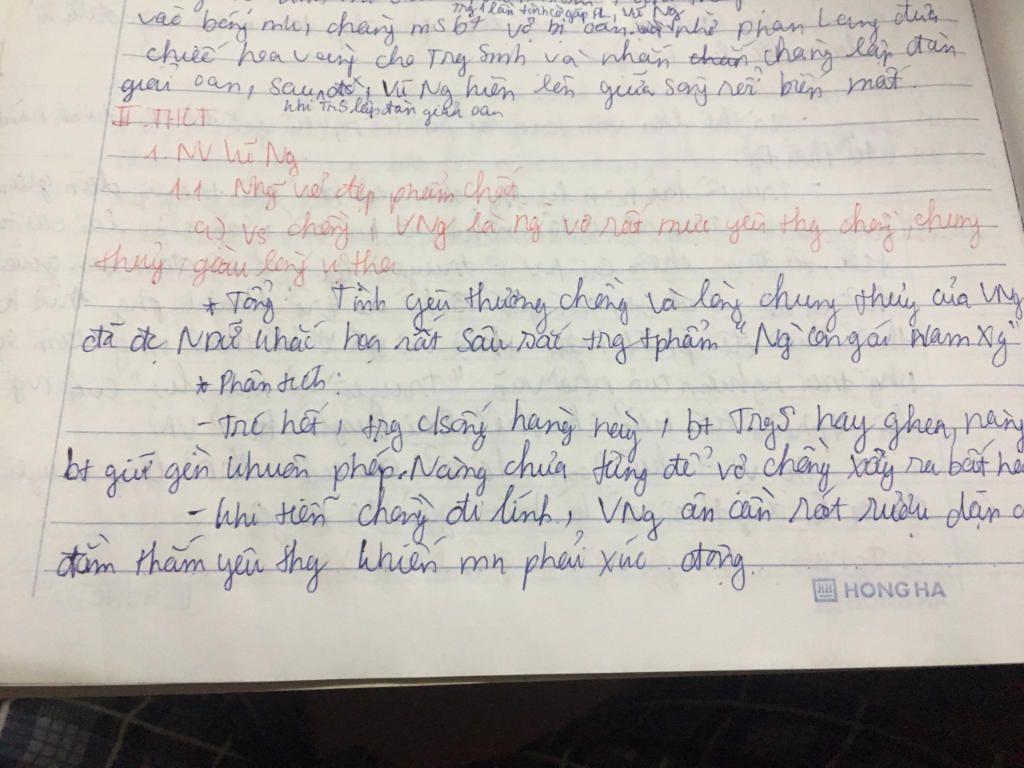 Trg 1 lần tình cờ gặp PL, Vũ Ng
vào bóng mk, chàng ms bt vợ bị oan. nhờ Phan Lang đưa
chiếc hoa vàng cho Trg Sinh và nhắn chàng lập đàn
giải oan, sau đó, Vũ Ng hiện lên giữa sông rồi biến mất.
khi TrS lập đàn giải oan
II. THCT
1. NV Vũ Ng
1.1 Nhg vẻ đẹp phẩm chất
a) vs chồng, VNg là ng vợ rất mực yêu thg chồng, chung
thủy, giàu lòng vị tha
* Tổng: Tình yêu thương chồng và lòng chung thủy của VNg
đã đc NDữ khắc họa rất sâu sắc trg tphẩm "Ng con gái Nam Xg"
* Phân tích:
- Trc hết, trg csống hàng ngày, bt TrgS hay ghen, nàng
bt giữ gìn khuôn phép. Nàng chưa từng để vợ chồng xảy ra bất hòa
- Khi tiễn chồng đi lính, VNg ân cần rót rượu dặn
đằm thắm yêu thg khiến mn phải xúc động.
HH HONG HA